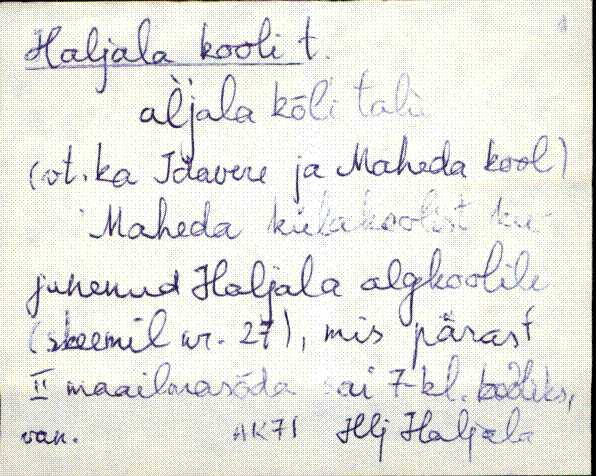 Haljala kooli t.
aljala kõli talu
(vt. ka Idavere ja Maheda kool)
Maheda külakoolist ku-
junenud Haljala algkoolile
(skeemil nr. 27), mis pärast
II maailmasõda sai 7-kl. kooliks,
van. AK71 Hlj Haljala